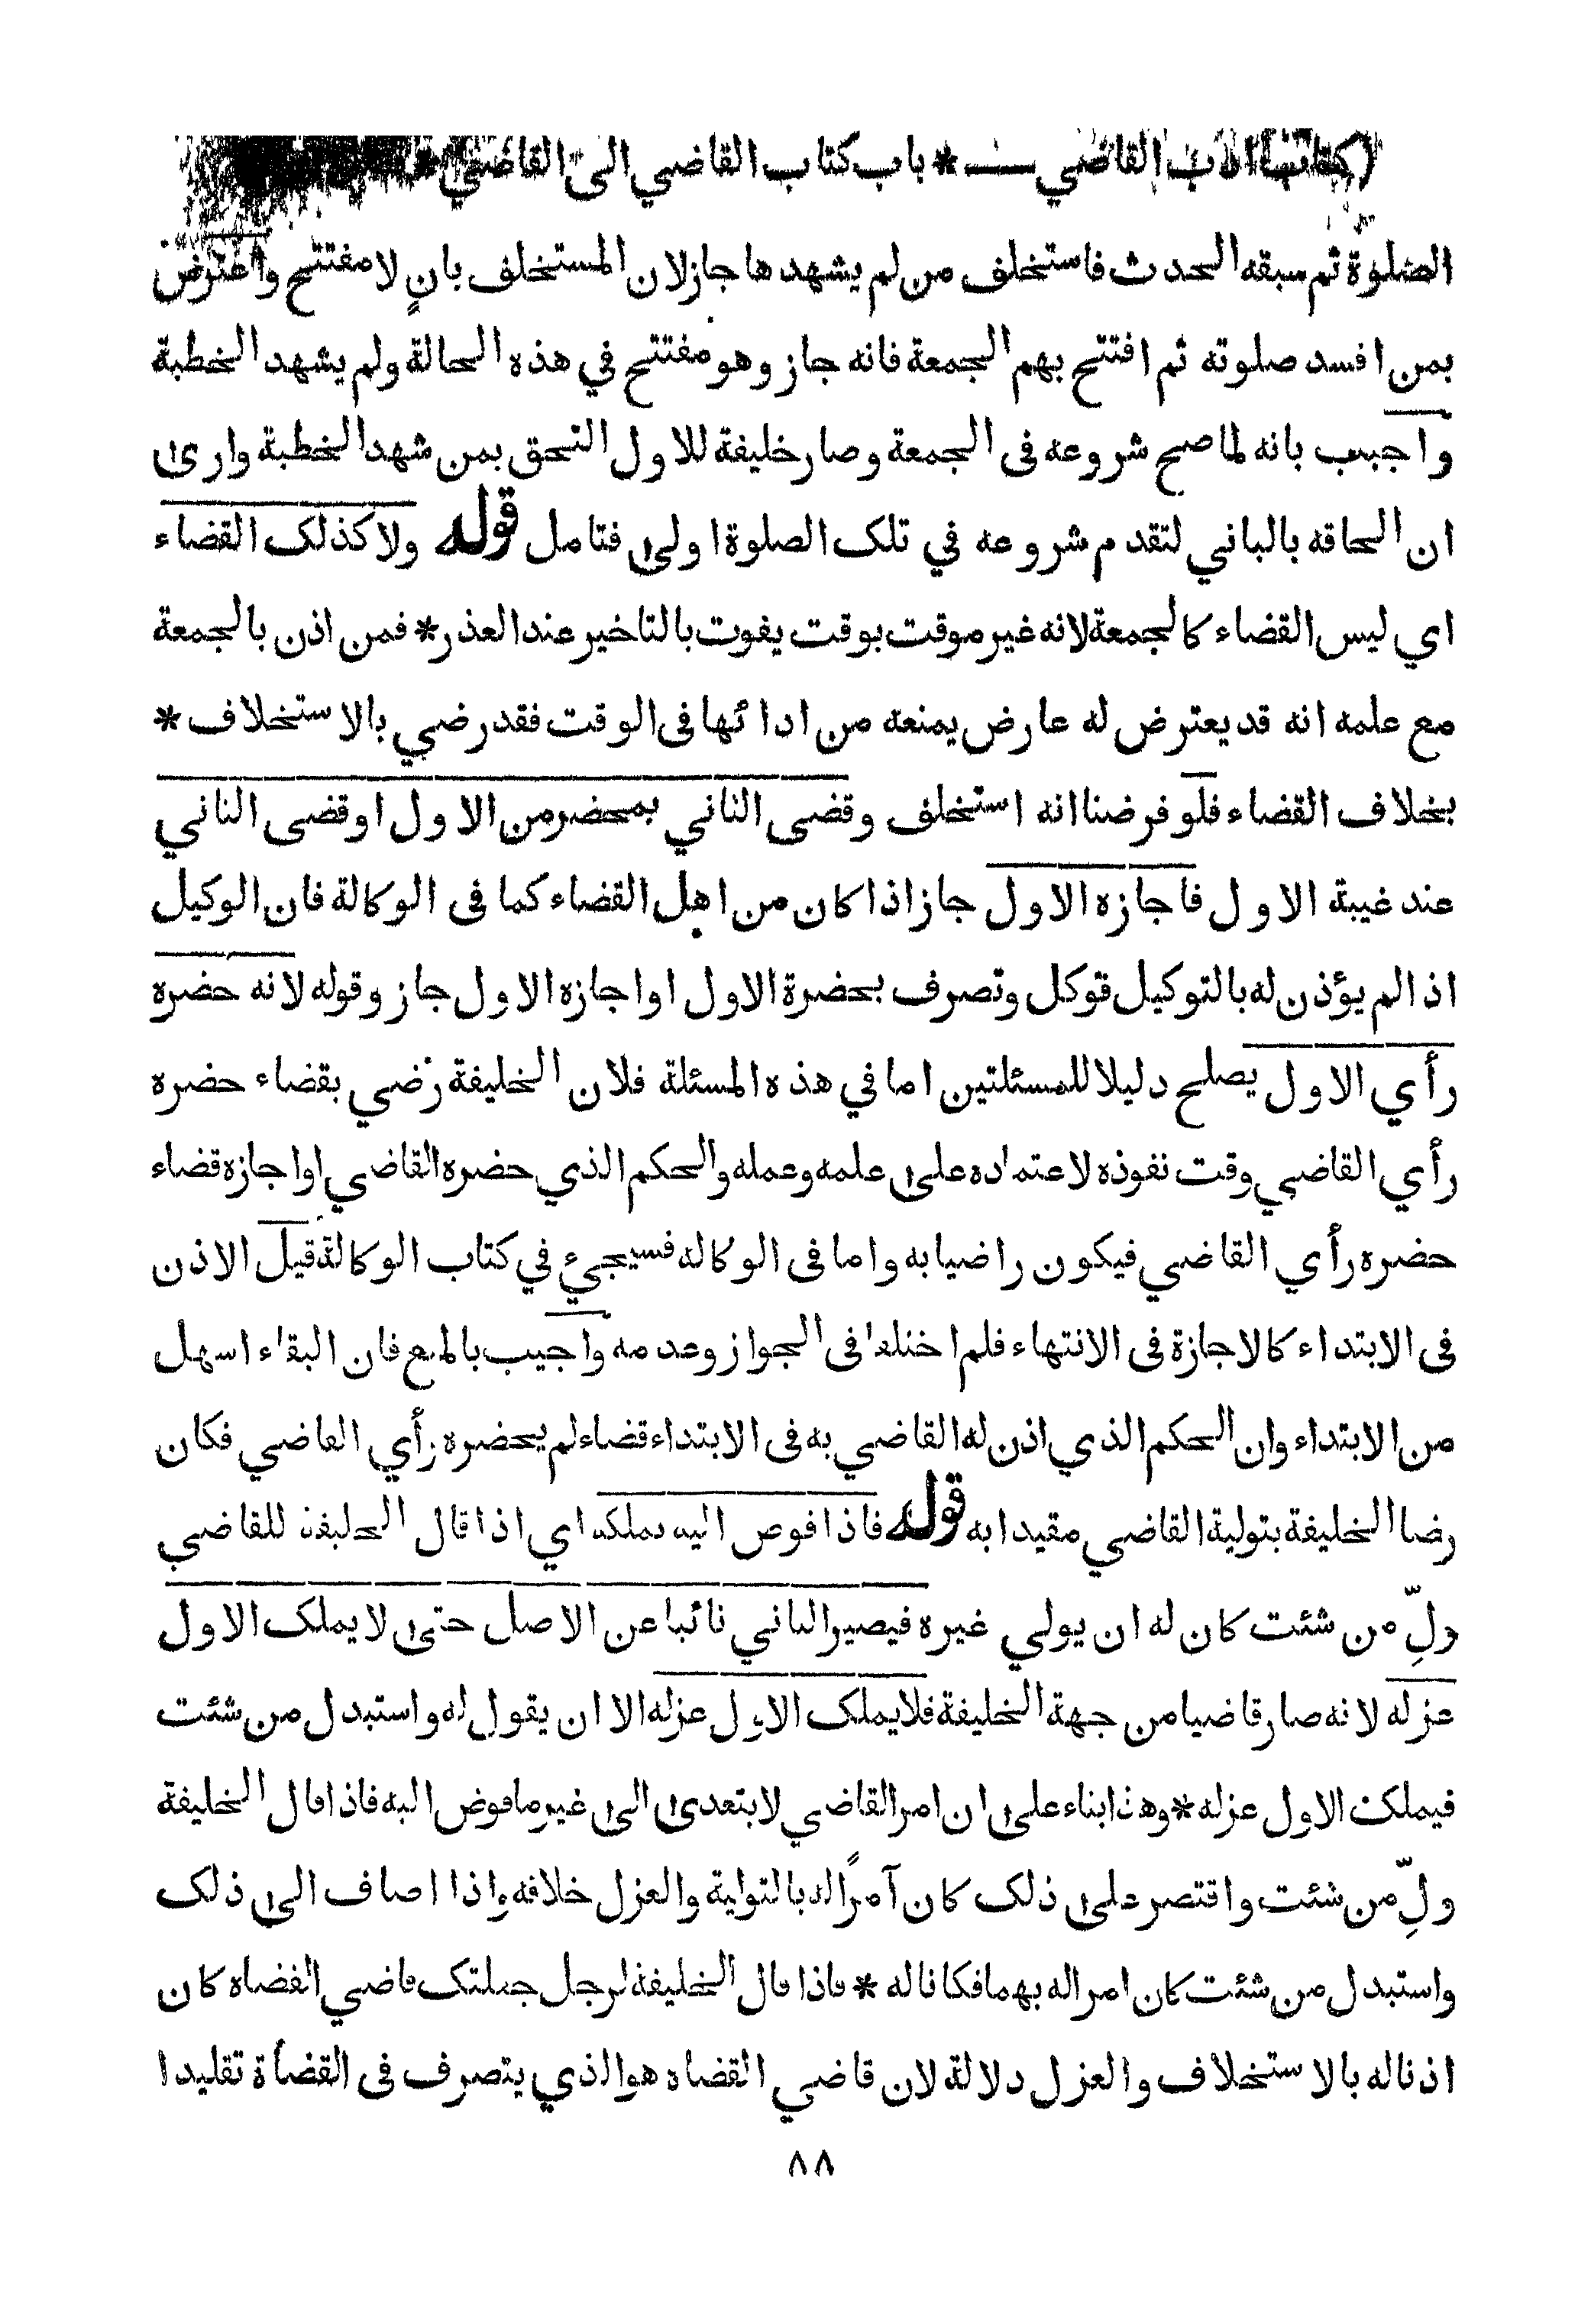 (كتاب ادب القاضي ــــ * باب كتاب القاضي الى القاضي
الصلوة ثم سبقه الحدث فاستخلف من لم يشهدها جاز لان المستخلف بانٍ لا مفتتح واعترض
بمن افسد صلوته ثم افتتح بهم الجمعة فانه جاز وهو مفتتح في هذه الحالة ولم يشهد الخطبة
واجيب بانه لما صح شروعه فى الجمعة وصار خليفة للاول التحق بمن شهد الخطبة وارى
ان الحاقه بالباني لتقدم شروعه في تلك الصلوة اولى فتامل قوله ولا كذلك القضاء
اي ليس القضاء كالجمعة لانه غير موقت بوقت يفوت بالتاخير عند العذر * فمن اذن بالجمعة
مع علمه انه قد يعترض له عارض يمنعه من ادائها فى الوقت فقد رضي بالاستخلاف *
بخلاف القضاء فلو فرضنا انه استخلف وقضى الثاني بمحضر من الاول او قضى الثاني
عند غيبة الاول فاجازه الاول جاز اذا كان من اهل القضاء كما فى الوكالة فان الوكيل
اذا لم يؤذن له بالتوكيل فوكل وتصرف بحضرة الاول او اجازه الاول جاز وقوله لانه حضره
رأي الاول يصلح دليلا للمسئلتين اما في هذه المسئلة فلان الخليفة رضي بقضاء حضره
رأي القاضي وقت نفوذه لاعتماده على علمه وعمله والحكم الذي حضره القاضي او اجازه قضاء
حضره رأي القاضي فيكون راضيا به واما فى الوكاله فسيجيء في كتاب الوكالة قيل الاذن
فى الابتداء كالاجازة فى الانتهاء فلم اختلفا فى الجواز وعدمه واجيب بالمنع فان البقاء اسهل
من الابتداء وان الحكم الذي اذن له القاضي به فى الابتداء قضاء لم يحضره رأي القاضي فكان
رضا الخليفة بتولية القاضي مقيدا به قوله فاذا فوض اليه يملكه اي اذا قال الخليفة للقاضي
ولِّ من شئت كان له ان يولي غيره فيصير الثاني نائبا عن الاصل حتى لا يملك الاول
عزله لانه صار قاضيا من جهة الخليفة فلا يملك الاول عزله الا ان يقول له واستبدل من شئت
فيملك الاول عزله * وهذا بناء على ان امر القاضي لا يتعدى الى غير ما فوض اليه فاذا قال الخليفة
ولِّ من شئت واقتصر على ذلك كان آمرًا له بالتولية والعزل خلافه واذا اضاف الى ذلك
واستبدل من شئت كان امرا له بهما فكانا له * فاذا قال الخليفة لرجل جعلتك قاضي القضاه كان
اذنا له بالاستخلاف والعزل دلالة لان قاضي القضاه هو الذي يتصرف فى القضاة تقليدا
٨٨